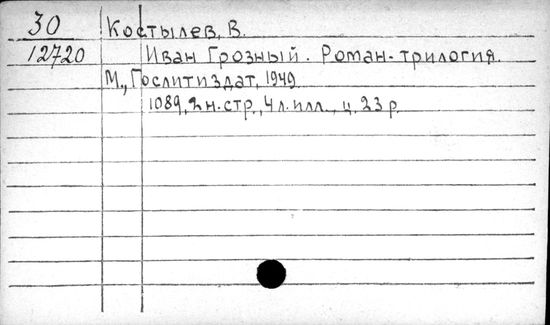 30 Костылев, В.
12720 Иван Грозный. Роман-трилогия.
М., Гослитиздат, 1949
1089, 2 н. стр., 4 л. илл., ц. 23 р.